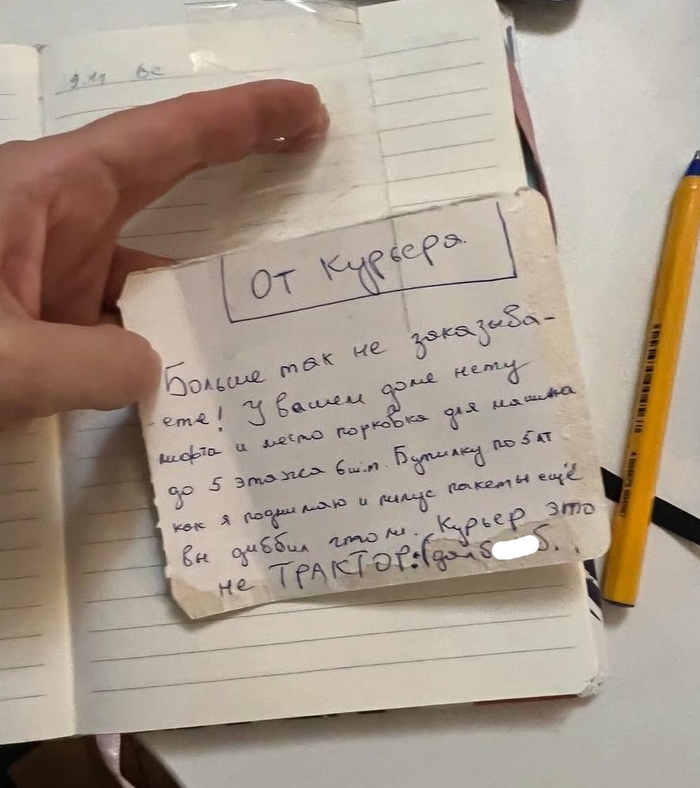 9.11 Вс
ОТ Курьера
Больше так не заказыва-
-ете! У вашем доме нету
лифта и место порковка для машина
до 5 этажа 6 шт. Бутилку по 5 лт
как я поднимаю и пилус пакеты ещё
вы диббил чтоли. Курьер это
не ТРАКТОР:(